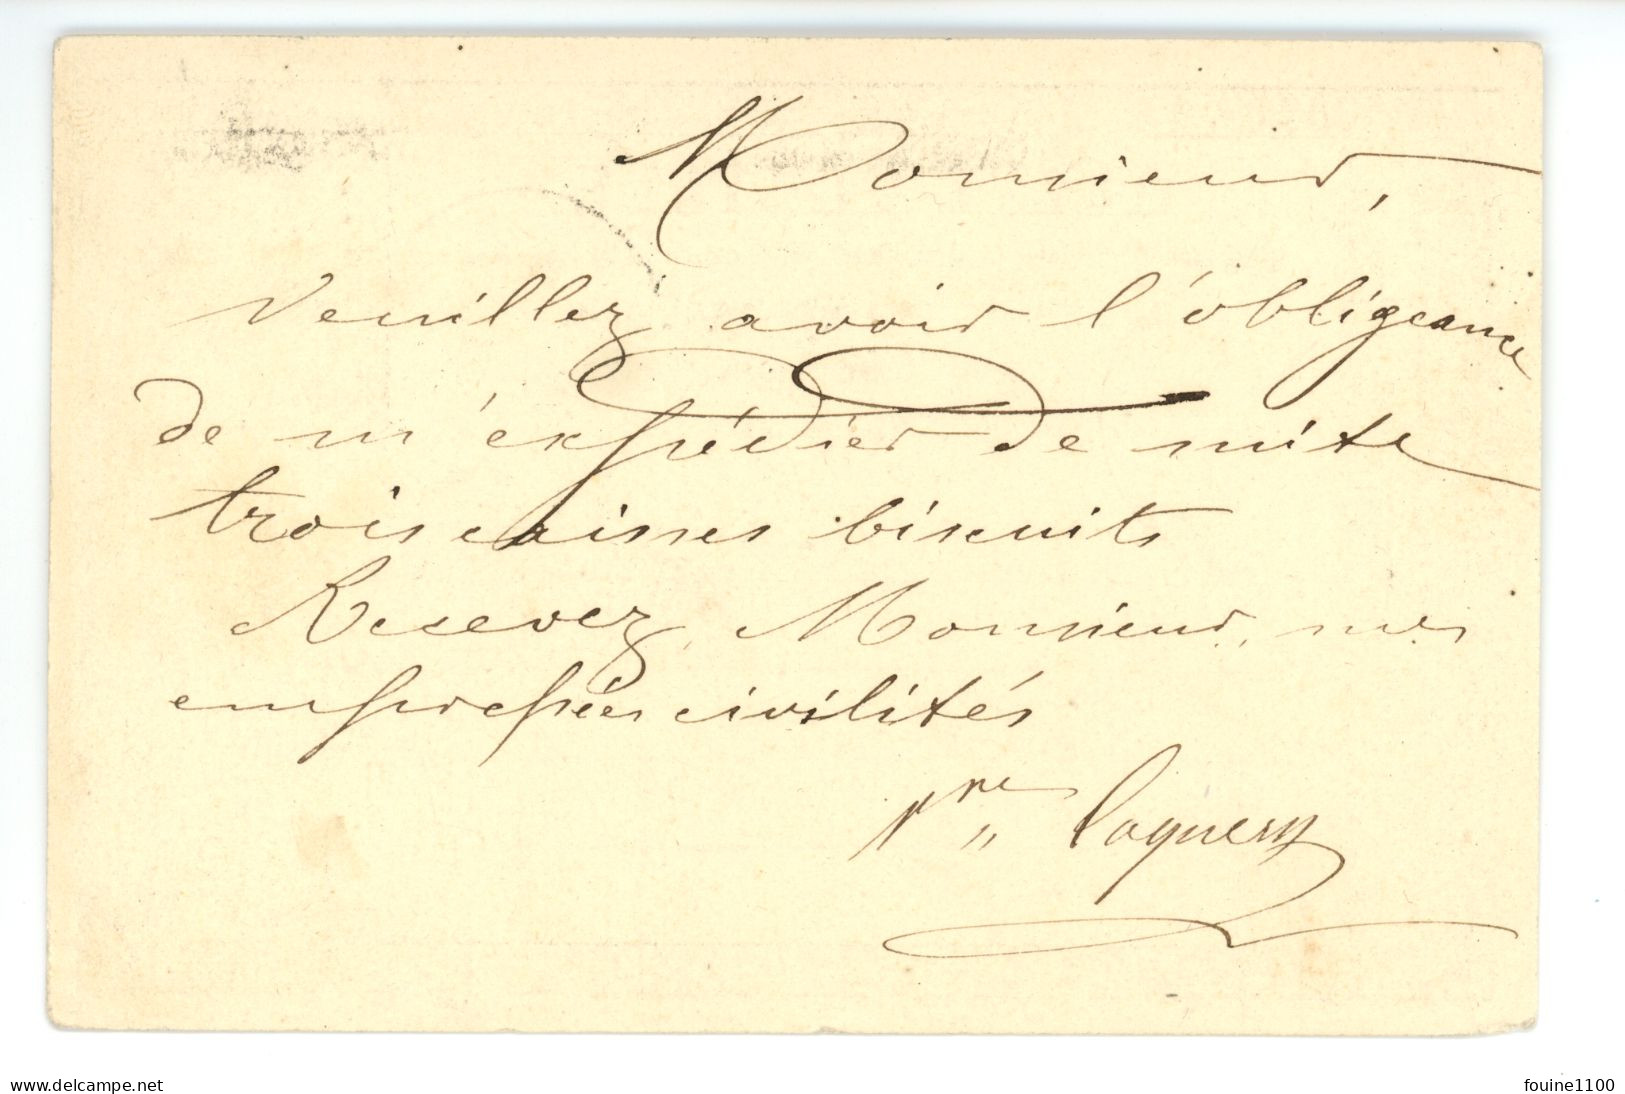 Monsieur,
Veuillez avoir l'obligeance
de m'expédier de suite
trois caisses biscuits
Recevez, Monsieur, mes
empressées civilités
www.delcampe.net
fouine1100